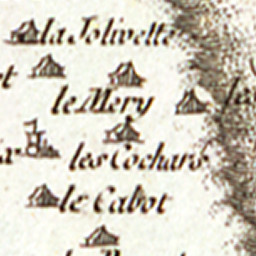 la Jolivette
le Mery
les Cochars
le Cabot